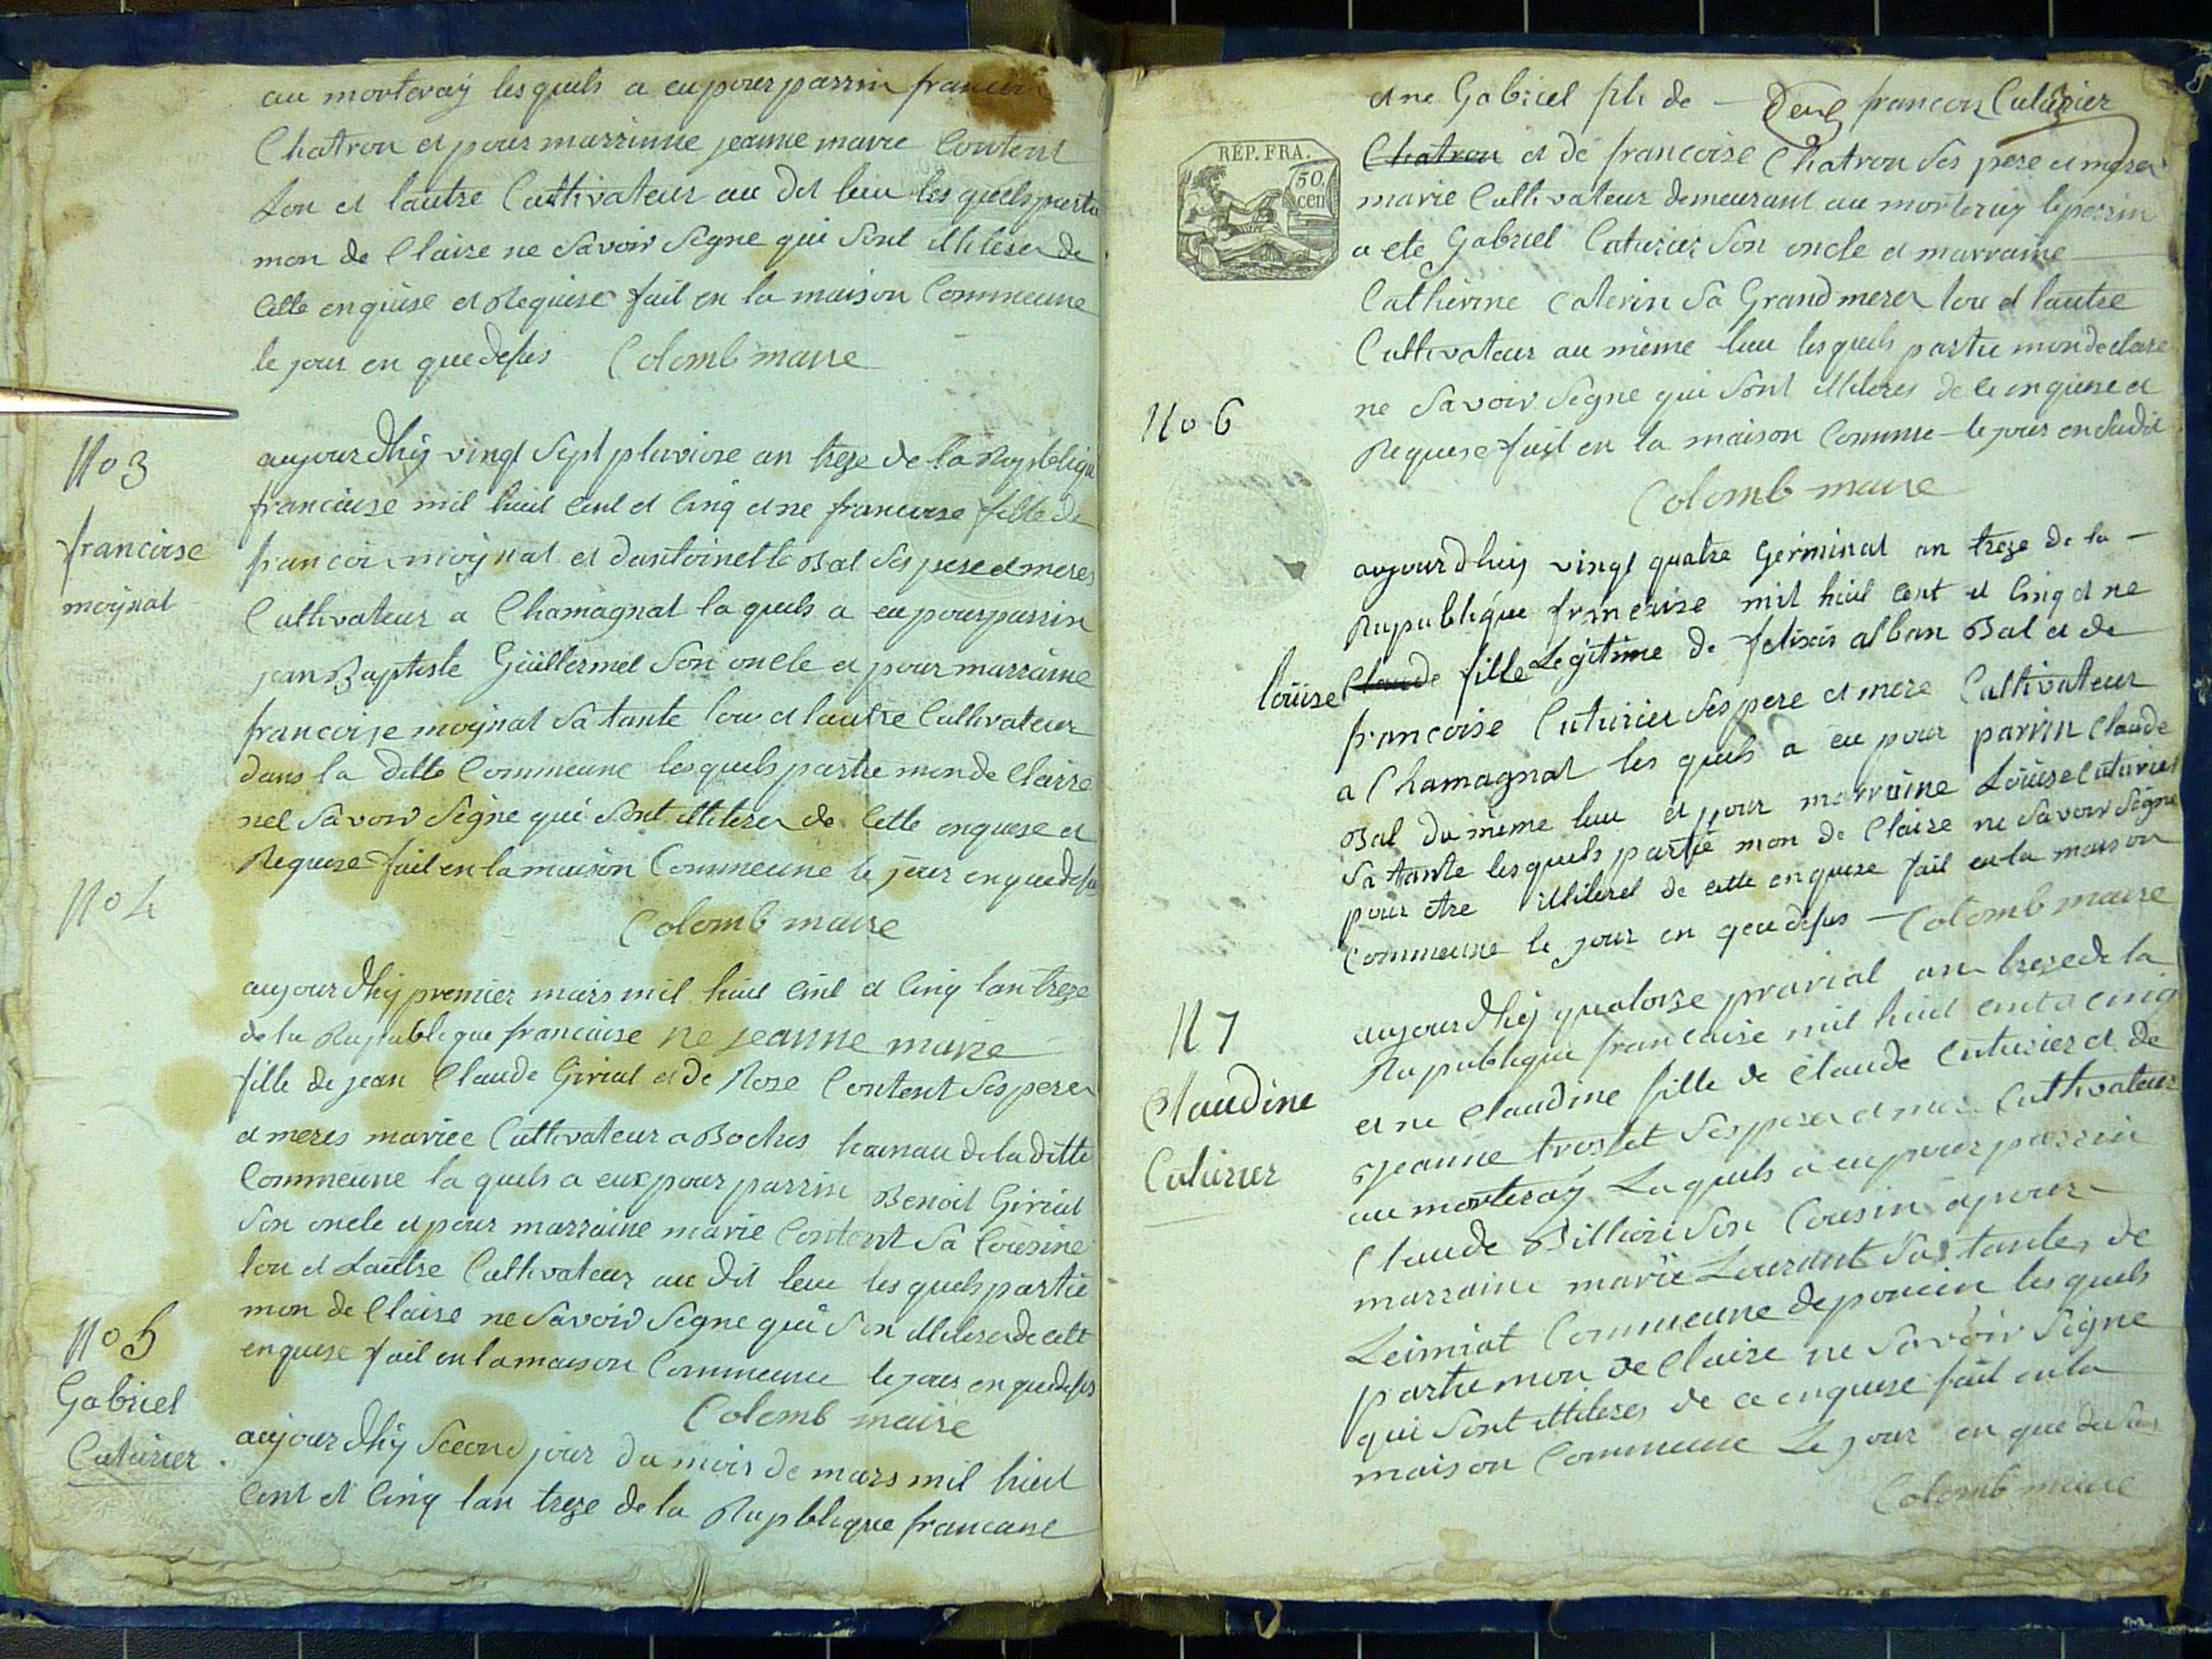 au morteray lesquels a eu pour parrin francoi
Chatron et pour marrinne jeanne marie Content
Lon et lautre Cultivateur au dit lieu les quels partie
mon de Claire ne Savoir Signe qui Sont illiteres de
Cette enquise et Requise fait en la maison Commeune
le jour en que desus Colomb maire
No 3
francoise
moynat
aujourdhüy vingt Sept pluviose an treze de la Republique
francaise mil huit Cent et Cinq et ne francoise fille de
francoi moynat et dantoinette Bal Ses pere et meres
Cultivateur a Chamagnat la quels a eu pour parrin
jean Baptiste Güillermet Son oncle et pour marraine
francoise moynat Sa tante lon et lautre Cultivateur
dans la ditte Commeune les quels partie mon de Clairre
nel Savoir Signe qui Sont illiteres de Cette enquese et
Requise fait en la maison Commeune le jour en que desus
Colomb maire
No 4
aujourdhüy premier mars mil huit Cent et Cinq lan treze
de la Republique francaise ne jeanne marie
fille de jean Claude Girial et de Rose Content Ses peres
et meres mariee Cultivateur a Boches hamau de la ditte
Commeune la quels a eux pour parrin Benoit Girial
Son oncle et pour marraine marie Content Sa Cousine
lon et Lautre Cultivateur au dit lieu les quels partie
mon de Claire ne Savoir Signe qui Son illiteres de cette
enquese fait en la maison Commeune le jour en que desus
Colomb maire
No 5
Gabriel
Cuturier
aujourdhüy Second jour du mois de mars mil huit
Cent et Cinq lan treze de la Republique francaise
et ne Gabriel fils de - francois Cuturier
Chatron et de francoise Chatron Ses pere et meres
marie Cultivateur demeurant au morteray le parrin
a ete Gabriel Cuturier Son oncle et marraine
Catherine Caterin Sa Grand meres lon et lautre
Cultivateur au même lieu les quels partie mon de clare
ne Savoir Signe qui Sont illiteres de ce enquise et
Requese fait en la maison Commune le jour en Sudit
Colomb maire
RÉP. FRA.
50
cen
No 6
aujourdhuy vingt quatre Germinal an treze de la -
Republique francaise mil huit Cent et Cinq et ne
loüise Claude fille Legitime de felixis alban Bal et de
francoise Cuturier Ses pere et mere Cultivateur
a Chamagnat les quels a eu pour parrin Claude
Bal du même lieu et pour marraine Loüise Cuturier
Sa tante les quels partie mon de Claire ne Savoir Signe
pour etre illiteret de cette enquese fait en la maison
Commeune le jour en que desus - Colomb maire
N 7
Claudine
Cuturier
aujourdhüy quatorse prarial an treze de la
Republique francaise mil huit cent a cinq
et ne Claudine fille de Claude Cuturier et de
jeanne troslet Ses peres et mere Cultivateur
au morteray Laquels a eu pour parrin
Claude Billion Son Cousin a pour
marraine marie Laurant Sa tantes de
Leimiat Commeune de poncin les quels
partie mon de Claire ne Savoir Signe
qui Sont illiteres de ce enquese fait en la
maison Commeune Le jour en que desus
Colomb maire